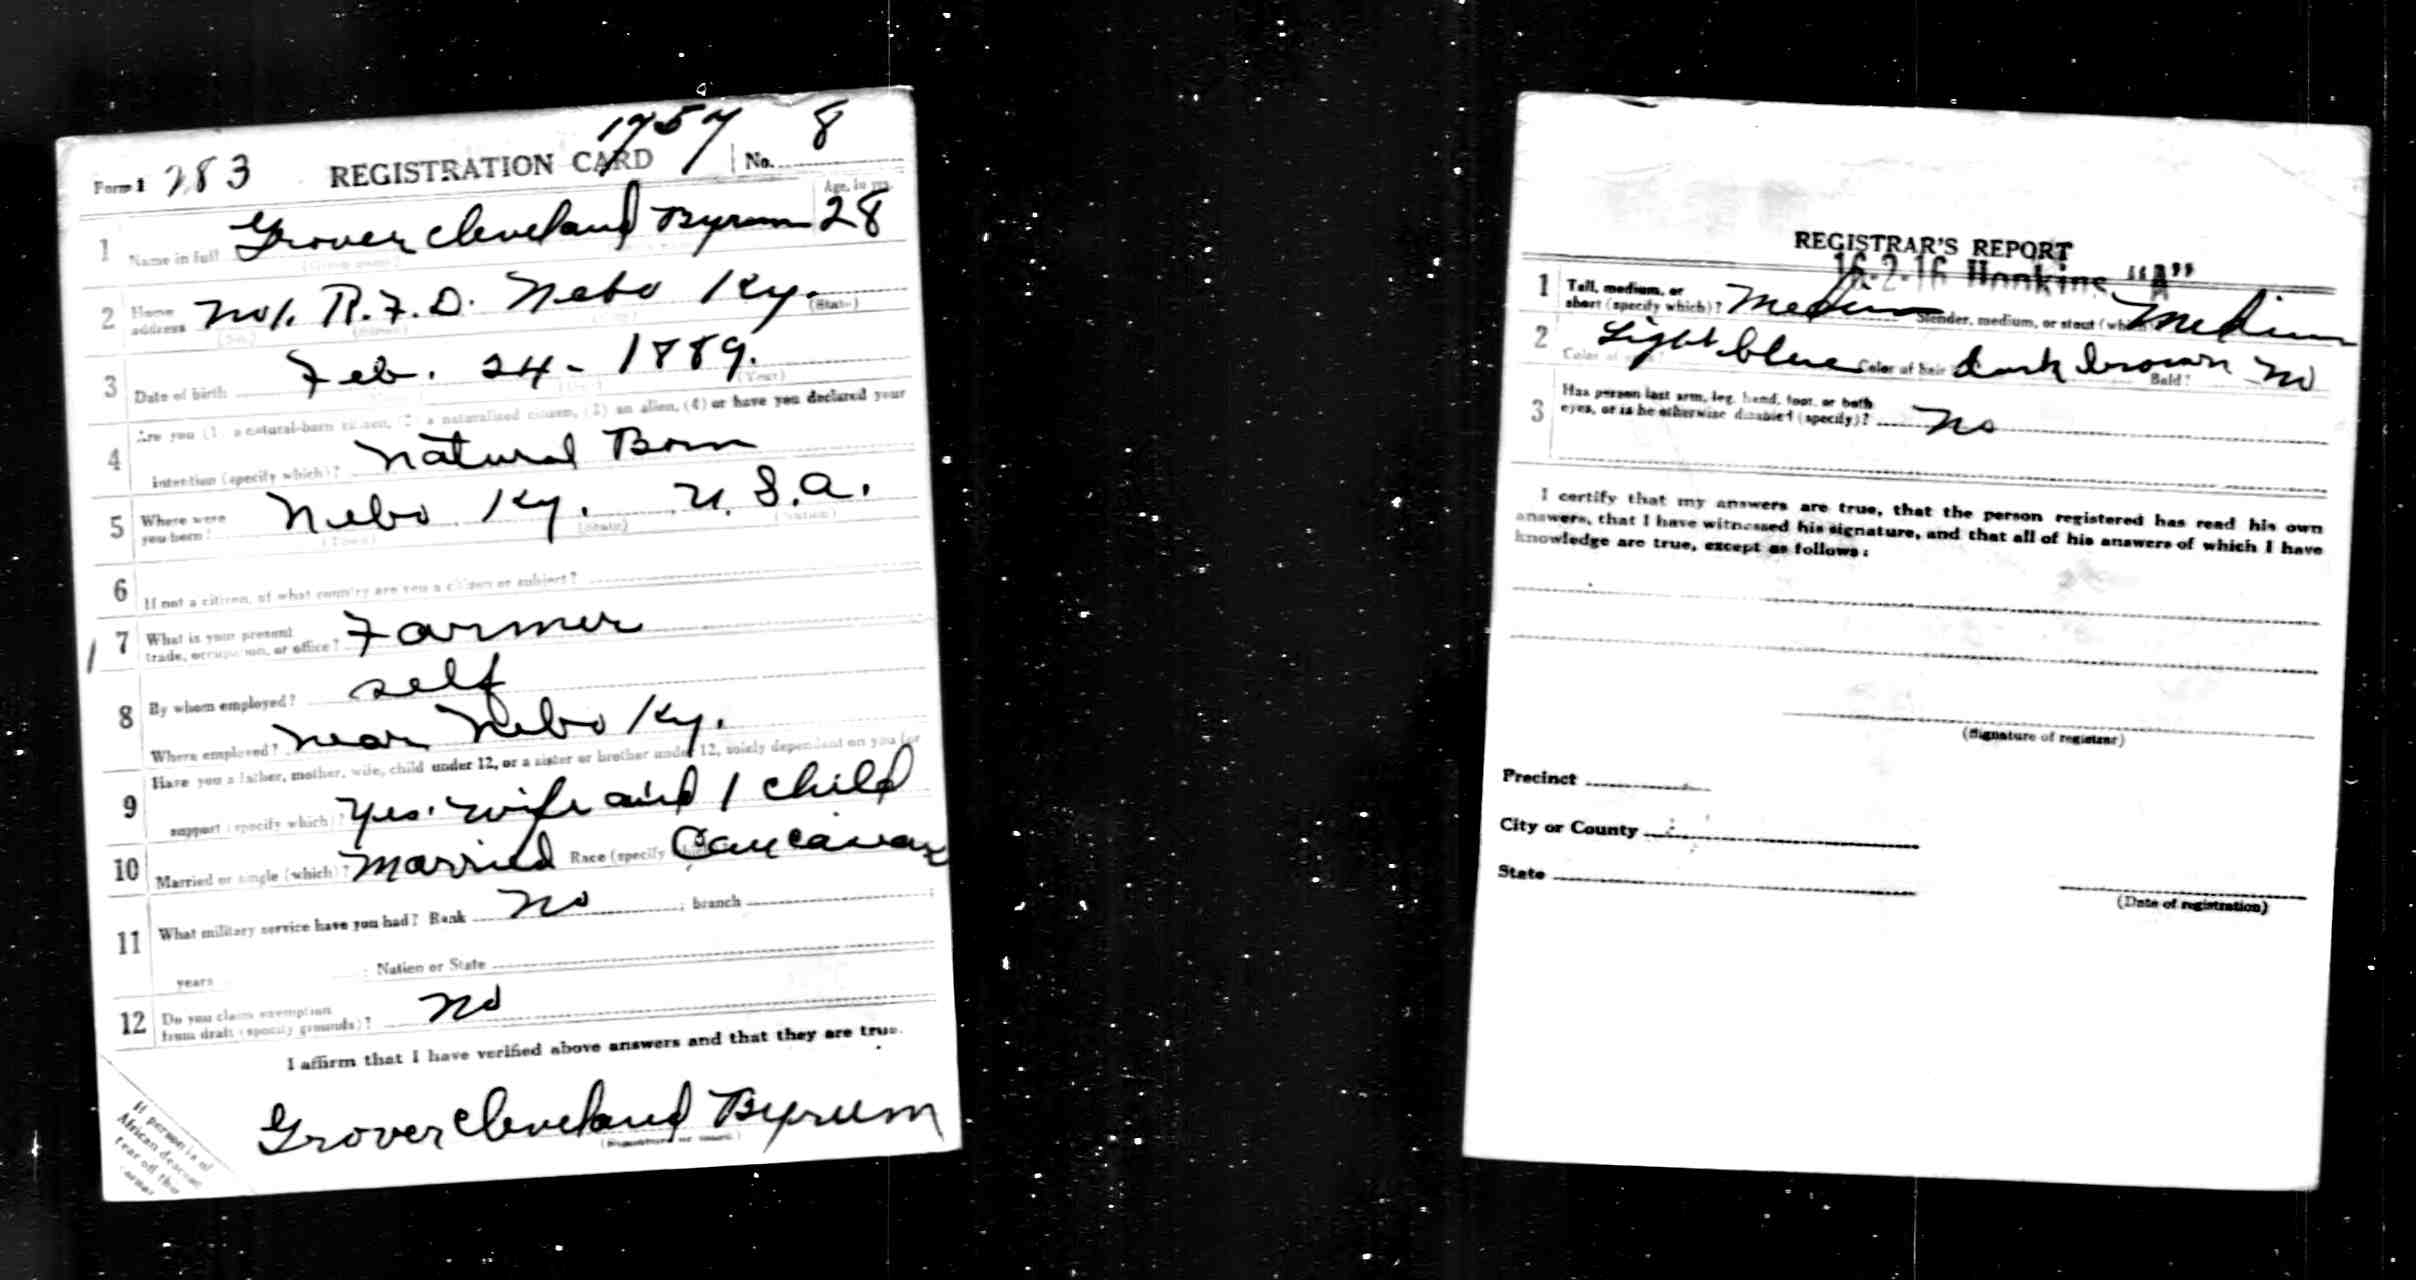 Form 1 283 REGISTRATION CARD 1757 No. 8
Age, in yrs.
1 Name in full Grover Cleveland Byrum 28
(Given name)
2 Home address No 1. R.F.D. Nebo Ky.
(No.) (Street) (City) (State)
3 Date of birth Feb. 24 - 1889.
(Year)
Are you (1) a natural-born citizen, (2) a naturalized citizen, (3) an alien, (4) or have you declared your
4 intention (specify which)? Natural Born
5 Where were you born? Nebo Ky. U.S.A.
(Town) (State) (Nation)
6 If not a citizen, of what country are you a citizen or subject?
7 What is your present trade, occupation, or office? Farmer
8 By whom employed? self
Where employed? Near Nebo Ky.
Have you a father, mother, wife, child under 12, or a sister or brother under 12, solely dependent on you for
9 support (specify which)? Yes. wife and 1 child
10 Married or single (which)? Married Race (specify which)? Caucasian
11 What military service have you had? Rank No ; branch ;
years ; Nation or State
12 Do you claim exemption from draft (specify grounds)? No
I affirm that I have verified above answers and that they are true.
Grover Cleveland Byrum
If person is of
African descent,
tear off this
corner
REGISTRAR'S REPORT
16-2-16 Hopkins "A"
1 Tall, medium, or short (specify which)? Medium Slender, medium, or stout (which)? Medium
2 Color of eyes? Light blue Color of hair dark brown Bald? No
3 Has person lost arm, leg, hand, foot, or both
eyes, or is he otherwise disabled (specify)? No
I certify that my answers are true, that the person registered has read his own
answers, that I have witnessed his signature, and that all of his answers of which I have
knowledge are true, except as follows:
(Signature of registrar)
Precinct
City or County
State
(Date of registration)